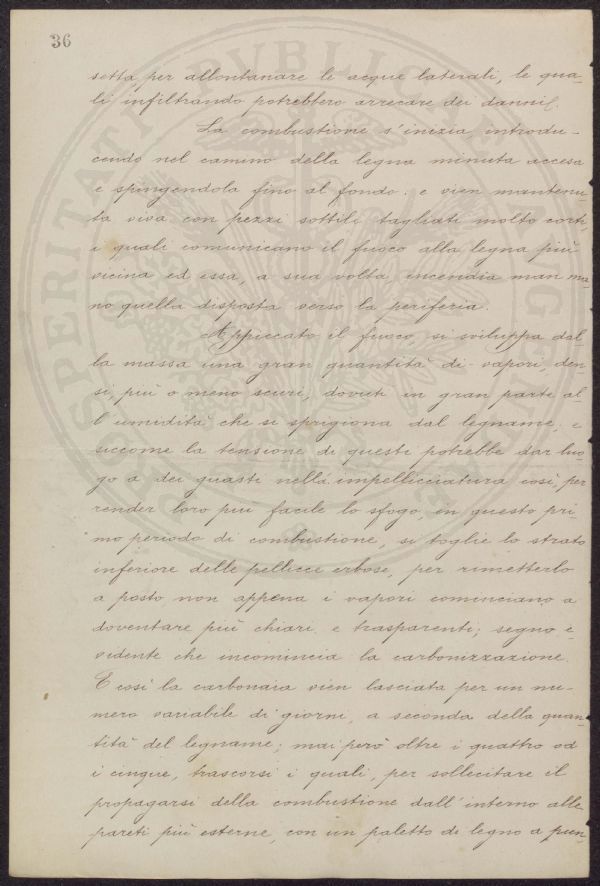 36
setta per allontanare le acque laterali, le qua-
li infiltrando potrebbero arrecare dei danni.
La combustione s'inizia introdu-
cendo nel camino della legna minuta accesa
e spingendola fino al fondo: e vien mantenu-
ta viva con pezzi sottili tagliati molto corti,
i quali comunicano il fuoco alla legna più
vicina ed essa, a sua volta, incendia man ma-
no quella disposta verso la periferia.
Appiccato il fuoco, si sviluppa dal-
la massa una gran quantità di vapori, den-
si, più o meno scuri, dovuti in gran parte al-
l'umidità che si sprigiona dal legname; e
siccome la tensione di questi potrebbe dar luo-
go a dei guasti nella impellicciatura così, per
render loro più facile lo sfogo, in questo pri-
mo periodo di combustione, si toglie lo strato
inferiore delle pellicce erbose, per rimetterlo
a posto non appena i vapori cominciano a
doventare più chiari e trasparenti; segno e-
vidente che incomincia la carbonizzazione.
E così la carbonaia vien lasciata per un nu-
mero variabile di giorni, a seconda della quan-
tità del legname; mai però oltre i quattro od
i cinque, trascorsi i quali, per sollecitare il
propagarsi della combustione dall'interno alle
pareti più esterne, con un paletto di legno a pun-
PROSPERITATI PVBLICAE AVGENDAE